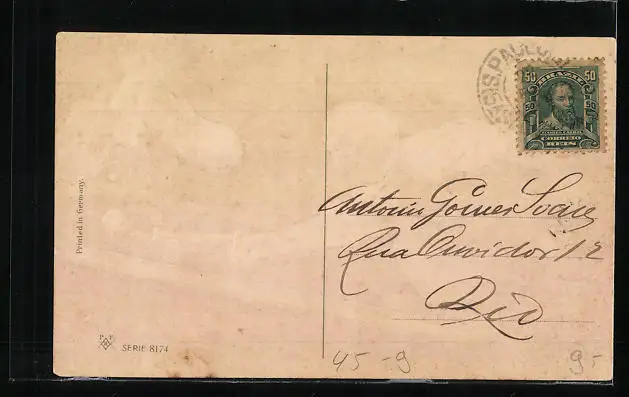 S. PAULO
50 BRAZIL 50
CORREIO
REIS
Antonio Gomes Soares
Rua Ouvidor 12
Rio
Printed in Germany.
SERIE 8174
45 - 9
9 -